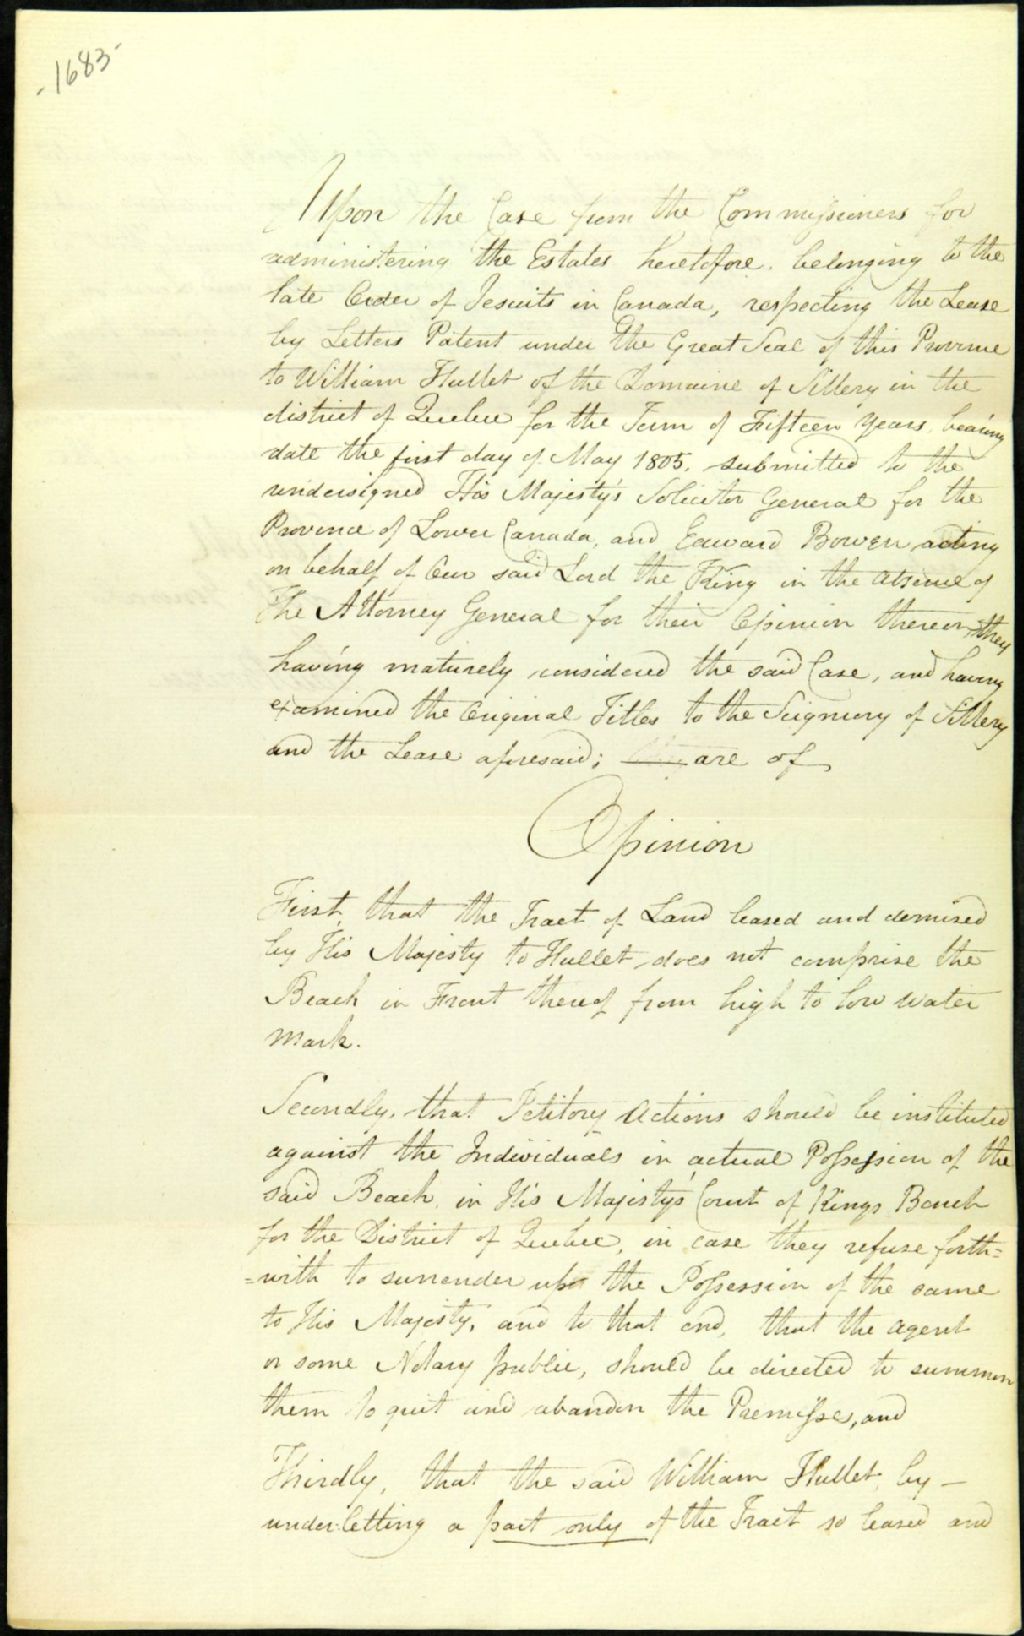 -1683-
Upon the Case from the Commissioners for
administering the Estates heretofore belonging to the
late Order of Jesuits in Canada, respecting the Lease
by Letters Patent under the Great Seal of this Province
to William Hullet of the Domaine of Sillery in the
district of Quebec for the Term of Fifteen Years, bearing
date the first day of May 1805, submitted to the
undersigned His Majesty's Solicitor General for the
Province of Lower Canada, and Edward Bowen acting
on behalf of Our said Lord the King in the absence of
The Attorney General for their Opinion thereon, they
having maturely considered the said Case, and having
examined the Original Titles to the Seignury of Sillery
and the Lease aforesaid; are of
Opinion
First, that the Tract of Land leased and demised
by His Majesty to Hullet does not comprise the
Beach in Front thereof from high to low water
mark.
Secondly, that Petitory Actions should be instituted
against the Individuals in actual Possession of the
said Beach, in His Majesty's Court of Kings Bench
for the District of Quebec, in case they refuse forth=
=with to surrender up the Possession of the same
to His Majesty, and to that end, that the agent
or some Notary public, should be directed to summon
them to quit and abandon the Premisses, and
Thirdly, that the said William Hullet, by –
underletting a part only of the Tract so leased and